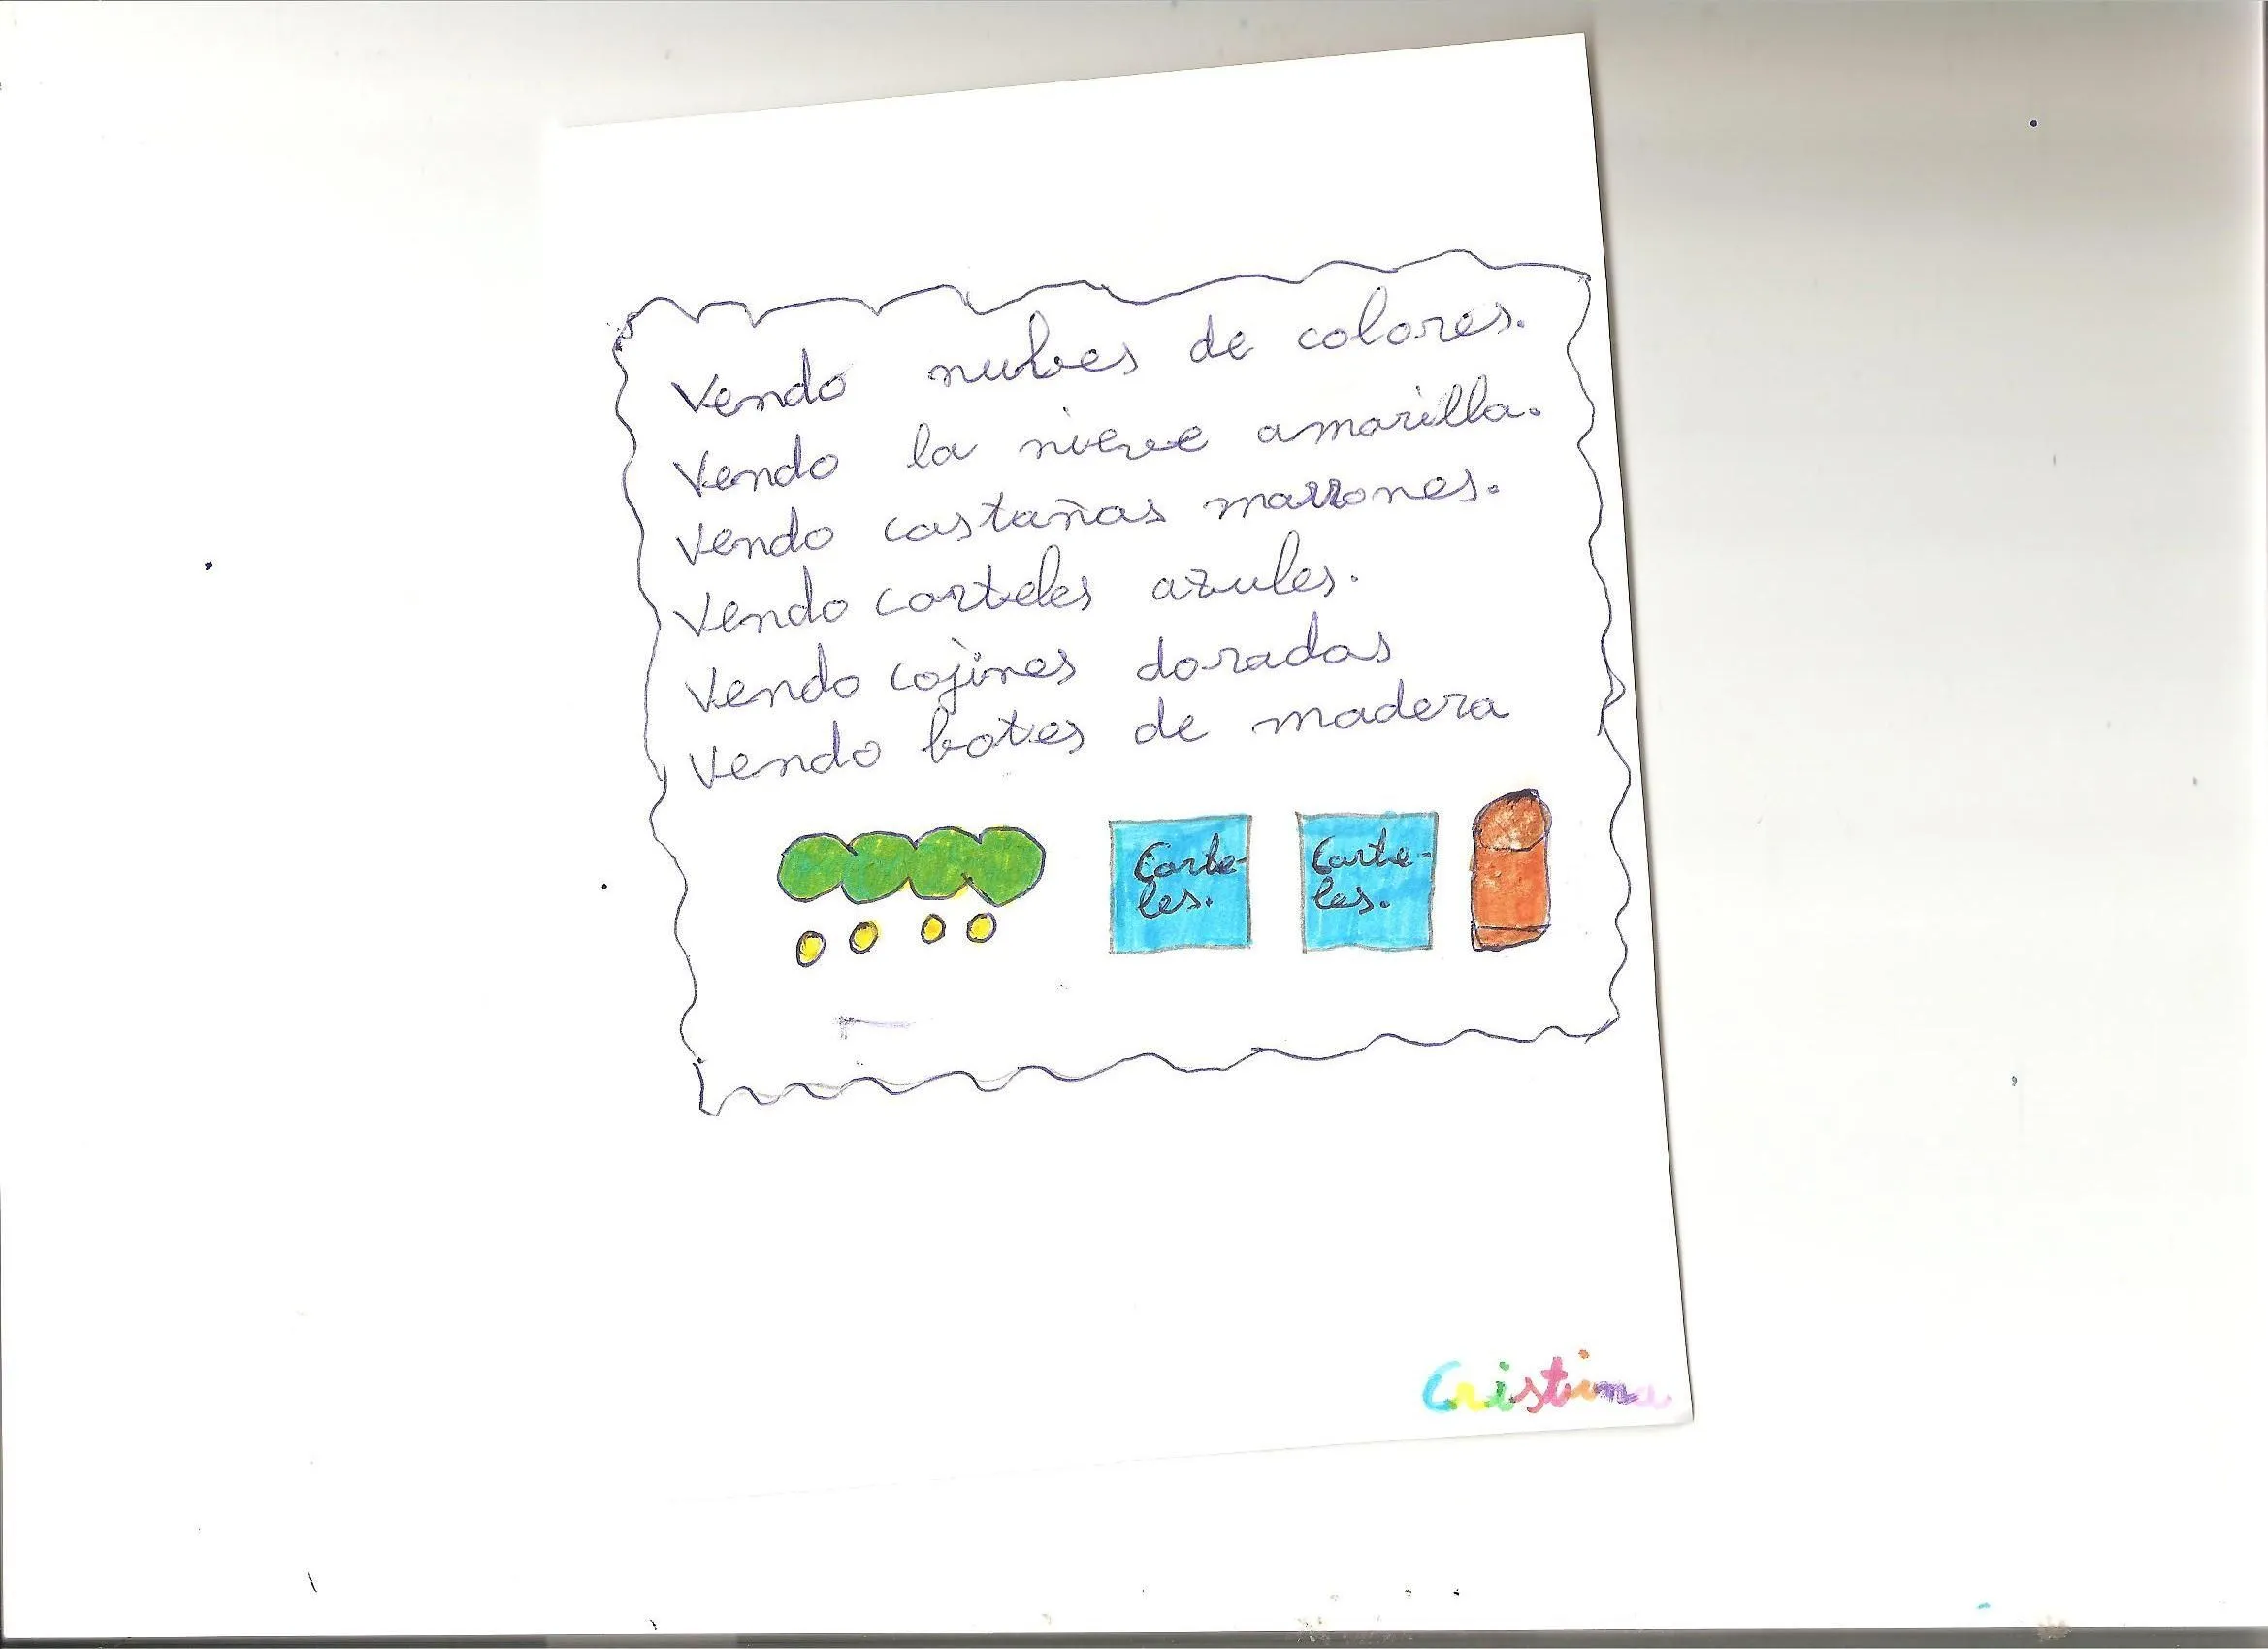 Vendo nubes de colores.
Vendo la nieve amarilla.
Vendo castañas marrones.
Vendo carteles azules.
Vendo cojines dorados
Vendo botes de madera
Carte-
les.
Carte-
les.
Cristina